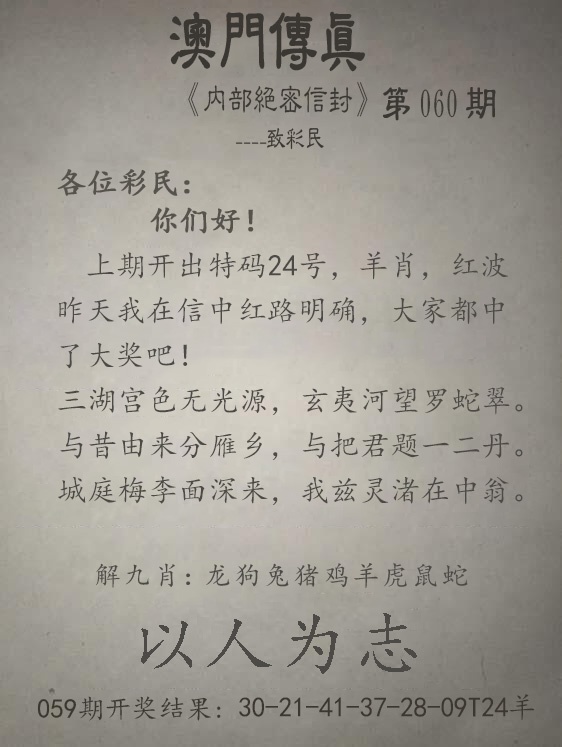 澳門傳真
《内部絕密信封》第060期
----致彩民
各位彩民：
你们好！
上期开出特码24号，羊肖，红波
昨天我在信中红路明确，大家都中
了大奖吧！
三湖宫色无光源，玄夷河望罗蛇翠。
与昔由来分雁乡，与把君题一二丹。
城庭梅李面深来，我兹灵渚在中翁。
解九肖：龙狗兔猪鸡羊虎鼠蛇
以人为志
059期开奖结果：30-21-41-37-28-09T24羊